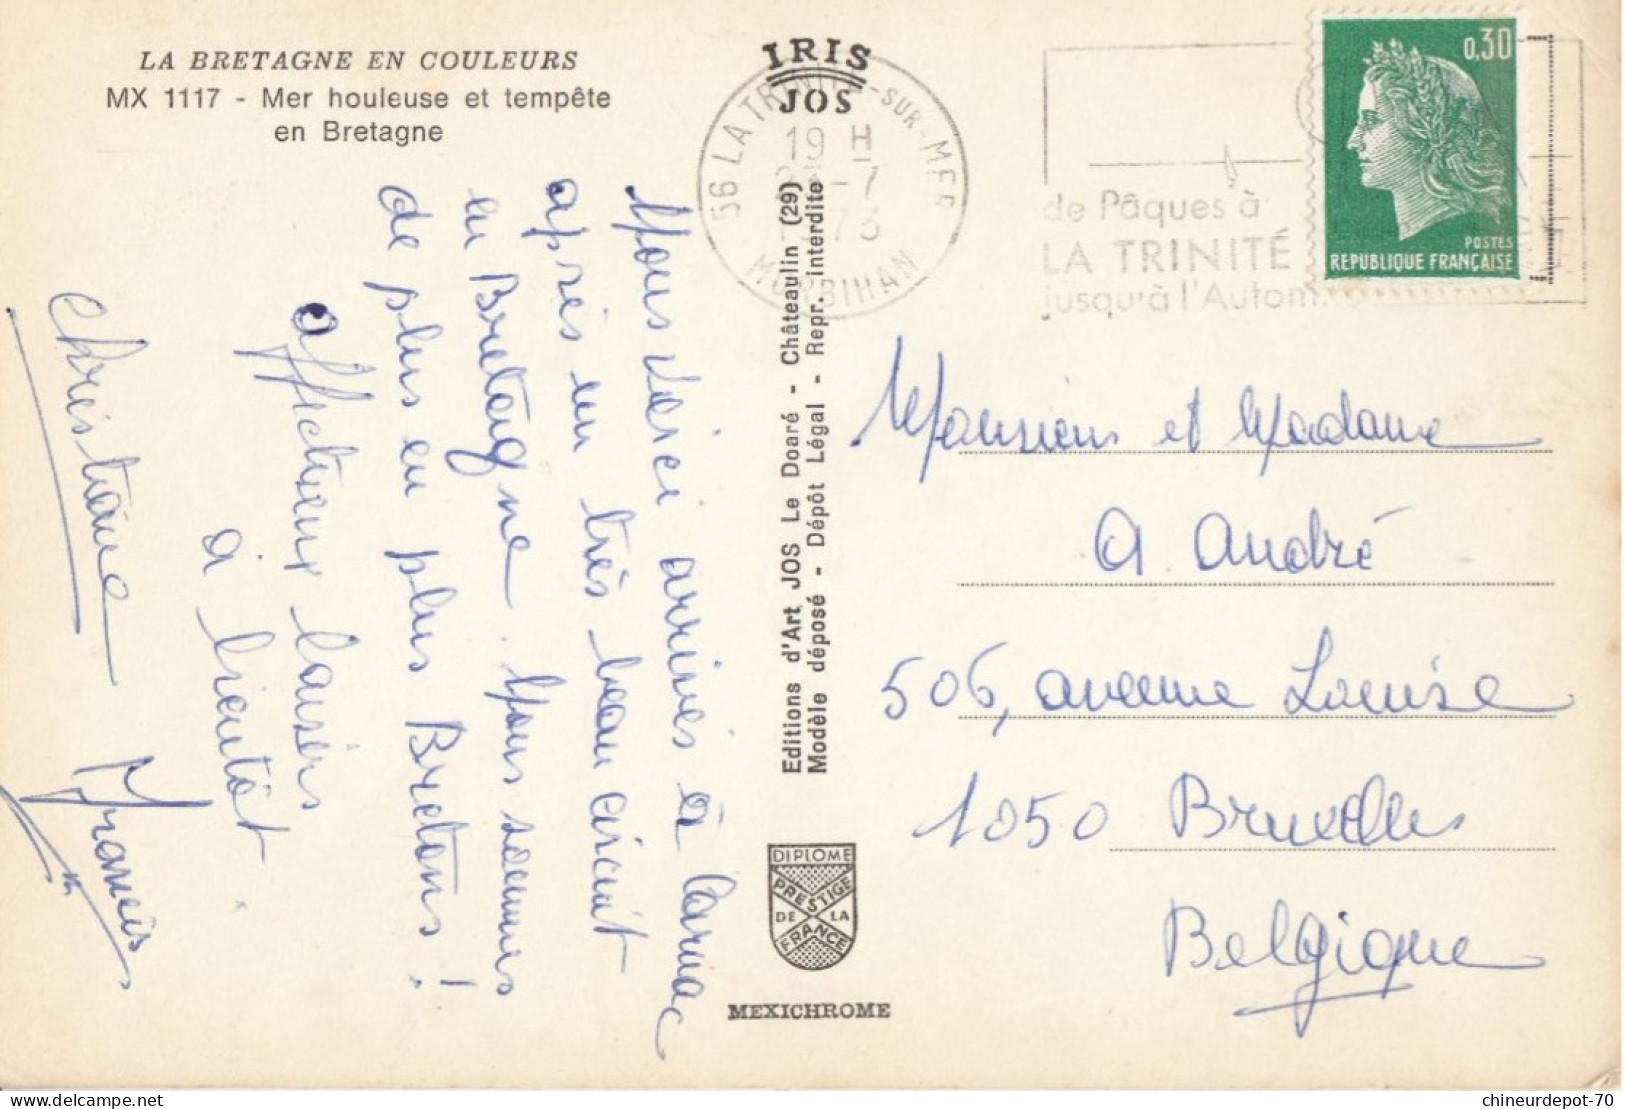 LA BRETAGNE EN COULEURS
MX 1117 - Mer houleuse et tempête
en Bretagne
IRIS
JOS
56 LA TRINITÉ-SUR-MER
19 H
-7
1973
MORBIHAN
de Pâques à
LA TRINITÉ
jusqu'à l'Automne
0,30
POSTES
REPUBLIQUE FRANÇAISE
Nous voici arrivés à Carnac
après un très beau circuit
en Bretagne. Nous sommes
de plus en plus Bretons !
affectueux baisers
à bientôt.
Christiane
Francis
Editions d'Art JOS Le Doaré - Châteaulin (29)
Modèle déposé - Dépôt Légal - Repr. interdite
Monsieur et Madame
A André
506, avenue Louise
1050 Bruxelles
Belgique
DIPLOME
PRESTIGE
DE LA
FRANCE
MEXICHROME
delcampe.net
chineurdepot-70